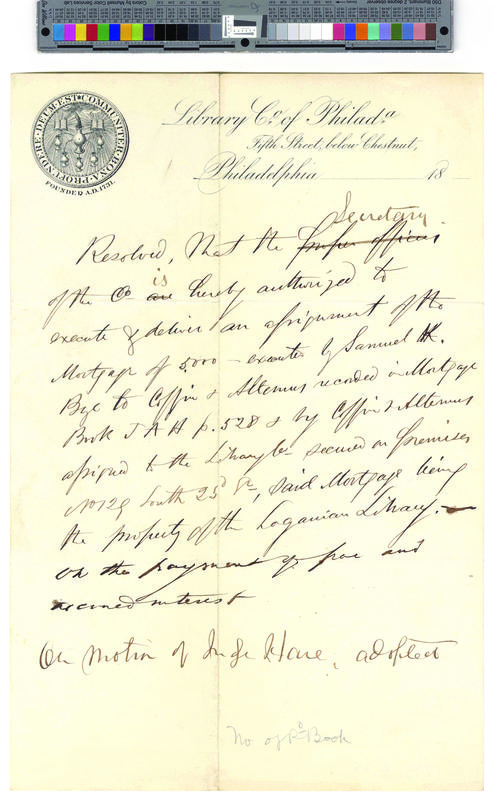 COMMUNITER·BONA·PROFUNDERE·DEUM·EST
FOUNDED A.D. 1731.
Library Co. of Philada.
Fifth Street, below Chestnut,
Philadelphia 18
Secretary
Resolved, That the proper officers
of the Co are is hereby authorized to
execute & deliver an assignment of the
Mortgage of 5000 - executed by Samuel H.
Bye to Coffin & Altemus recorded in Mortgage
Book J A H p. 528 & by Coffin & Altemus
assigned to the Library Co secured on premises
No 129 South 23d St, said Mortgage being
the property of the Loganian Library. -
on the payment of par and
accrued interest
On motion of Judge Hare, adopted
No. of Po Book